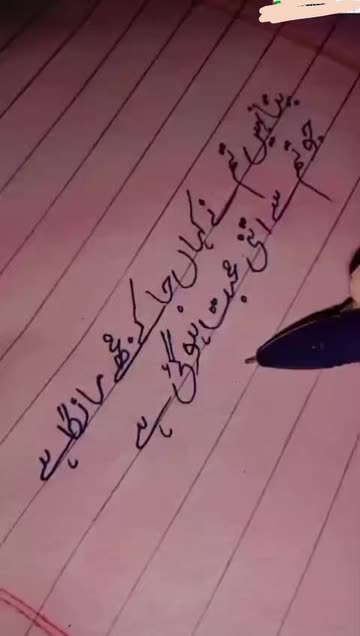 پتا نہیں تم نے کہاں جا کے مجھے مانگا ہے
جو تم سے اتنی محبت ہو گئی ہے